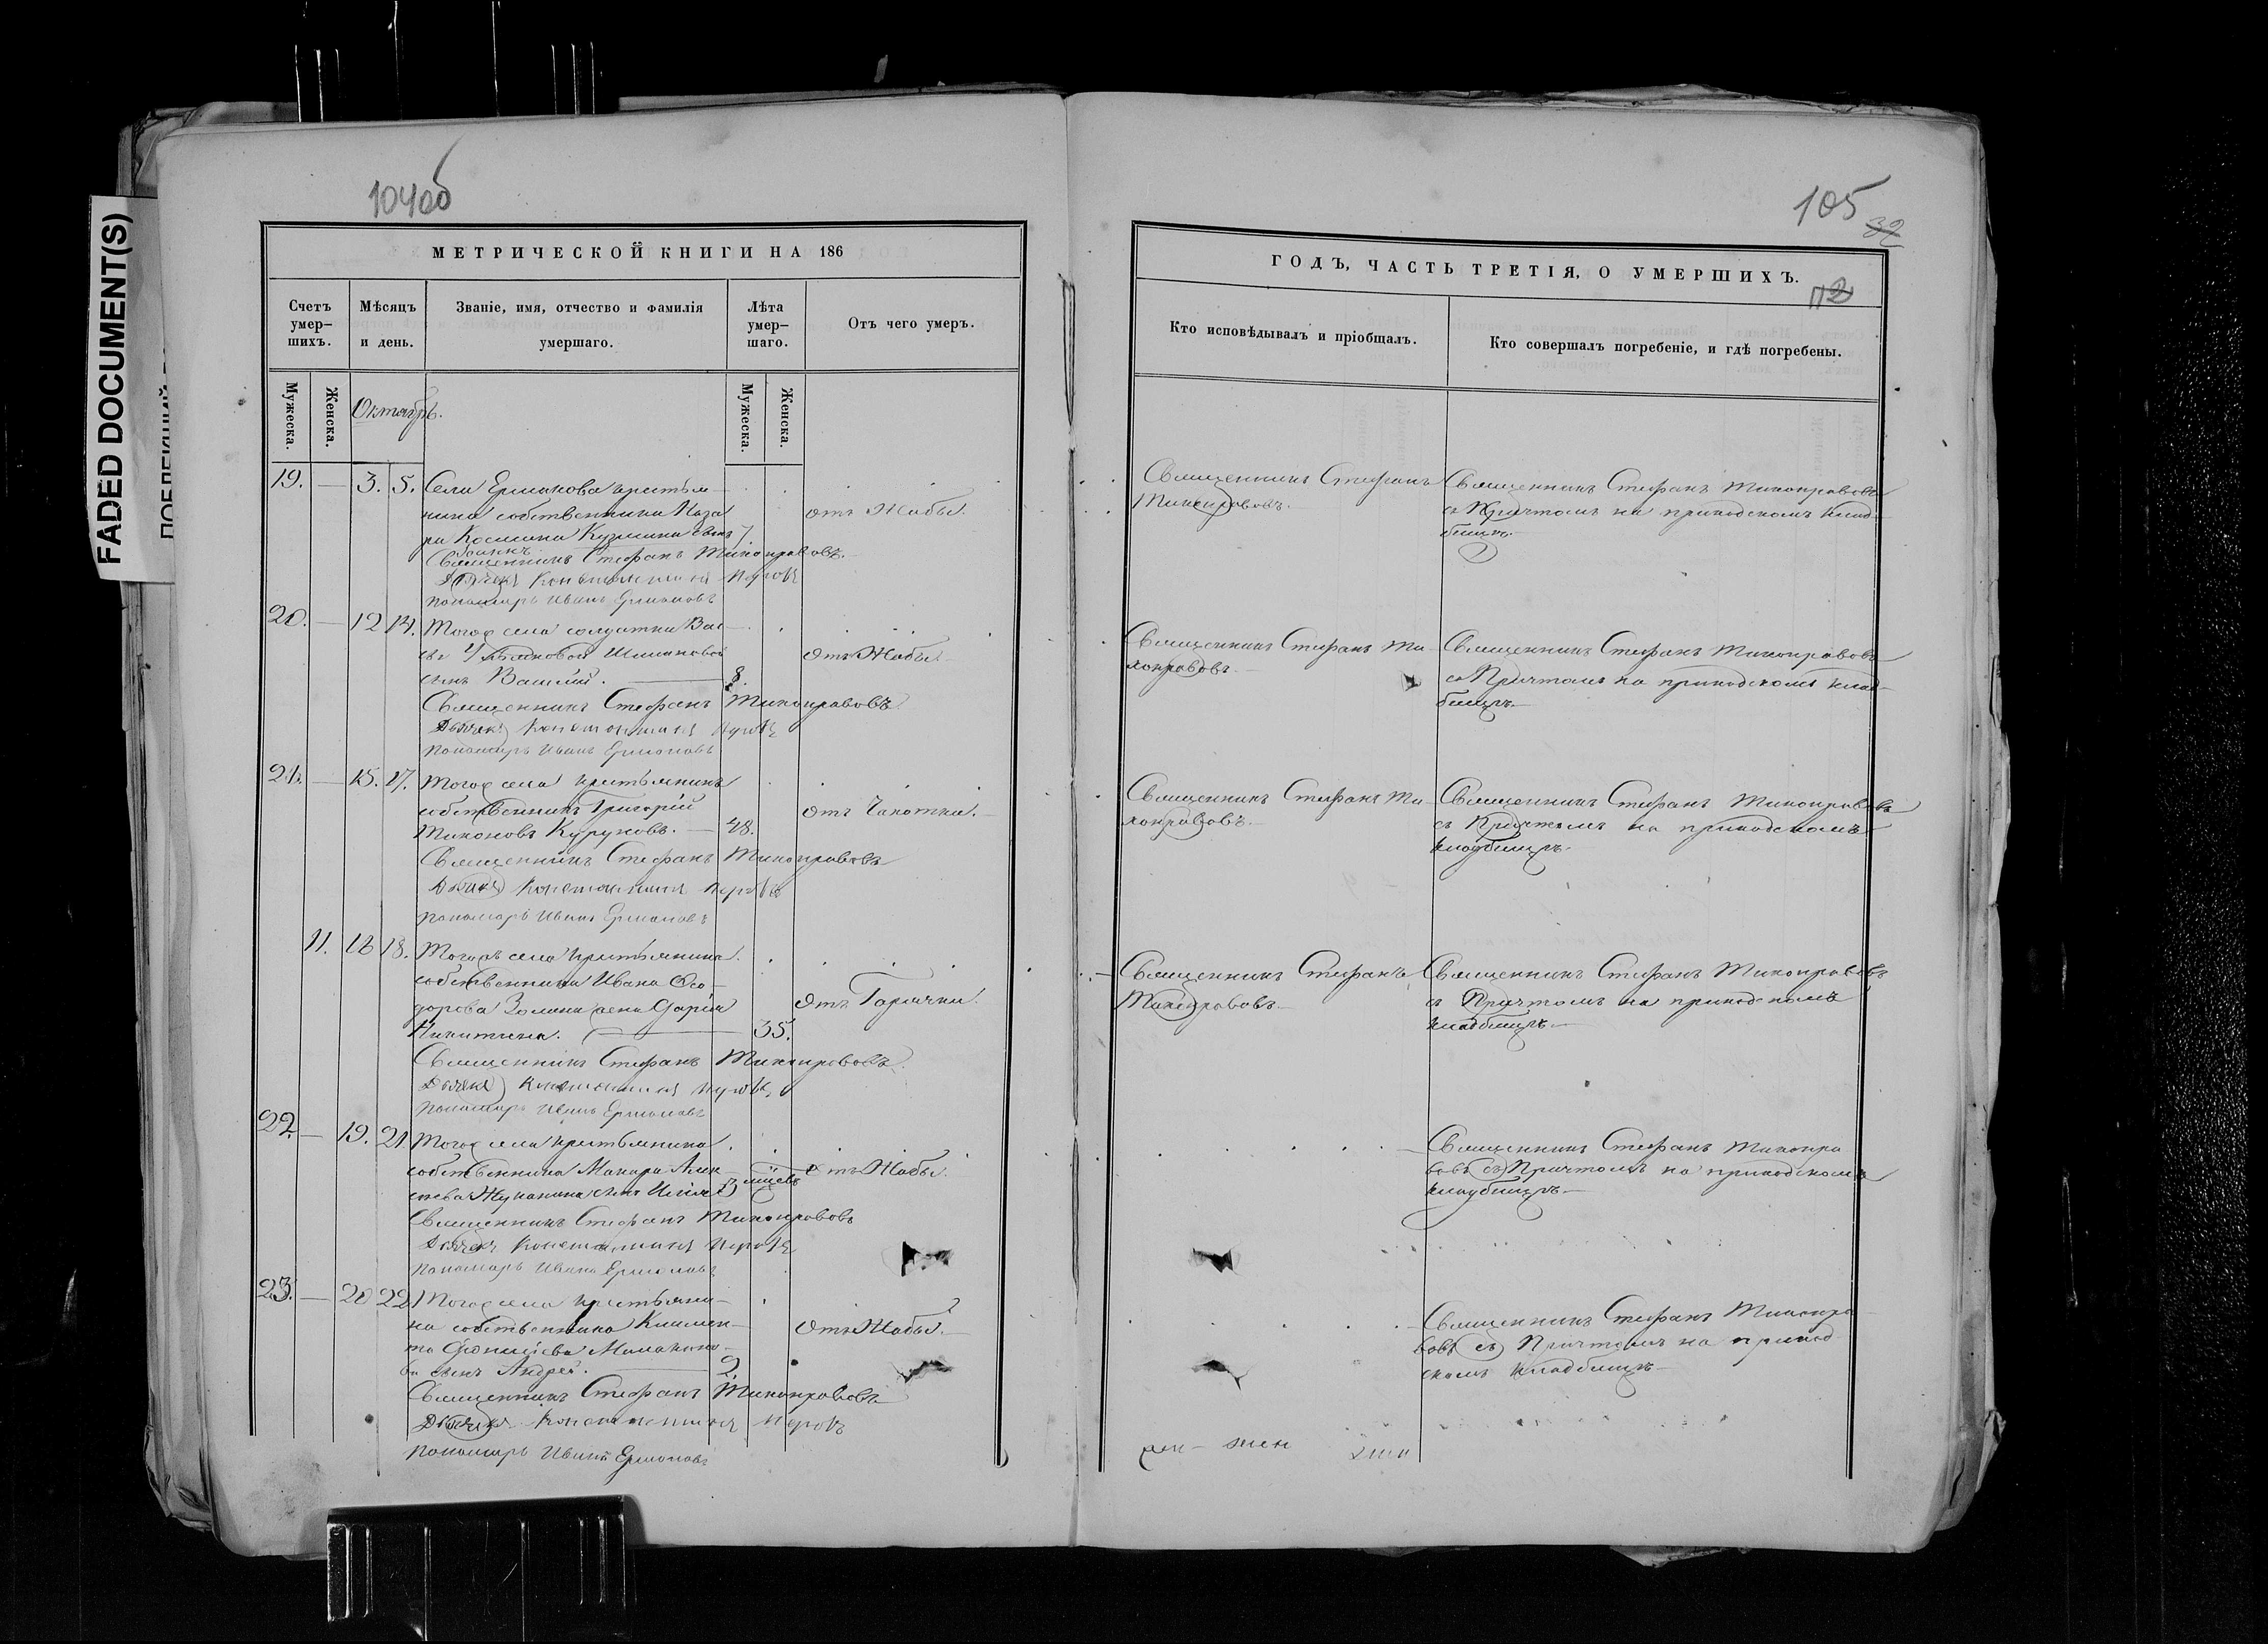 FADED DOCUMENT(S)
104об
105
32
МЕТРИЧЕСКОЙ КНИГИ НА 186
Счетъ умер-
шихъ.
Мѣсяцъ
и день.
Званіе, имя, отчество и фамилія
умершаго.
Лѣта
умер-
шаго.
Отъ чего умеръ.
Мужеска.
Женска.
Октябрь.
Мужеска.
Женска.
19. — 3. 5. Села Ермакова крестья-
нина собственника Наза
ра Косьмина Кузмина сынъ 7.
отъ Жабы.
Священникъ Стефанъ Тихонравовъ.
Дьячекъ Константинъ
пономарь Иванъ Ермоловъ
20. — 12 14. Тогоже села солдатки Вас
сы Ульяновой Шишковой
сынъ Василій. — 8.
Отъ Жабы.
Священникъ Стефанъ Тихонравовъ
Дьячекъ Константинъ
пономарь Иванъ Ермоловъ
21. — 15. 17. Тогоже села крестьянинъ
собственникъ Григорій
Тихоновъ Куруновъ. — 48.
отъ Чахотки.
Священникъ Стефанъ Тихонравовъ
Дьячекъ Константинъ
пономарь Иванъ Ермоловъ
11. 16 18. Тогоже села крестьянина
собственника Ивана Ѳео-
дорова Золина жена Дарія
Никитина. — 35.
Отъ Горячки.
Священникъ Стефанъ Тихонравовъ.
Дьячекъ Константинъ
пономарь Иванъ Ермоловъ
22. — 19. 21 Тогоже села крестьянина
собственника Макара Алек-
сѣева сынъ Илія 3 мѣсяцѣвъ
отъ Жабы.
Священникъ Стефанъ Тихонравовъ
Дьячекъ Константинъ
пономарь Иванъ Ермоловъ
23. — 20 22 Тогоже села крестьяни-
на собственника Климен-
та
ва сынъ Андрей. 2.
Отъ Жабы.
Священникъ Стефанъ Тихонравовъ
Дьячекъ Константинъ
пономарь Иванъ Ермоловъ
ГОДЪ, ЧАСТЬ ТРЕТІЯ, О УМЕРШИХЪ.
Кто исповѣдывалъ и пріобщалъ.
Кто совершалъ погребеніе, и гдѣ погребены.
Священникъ Стефанъ
Тихонравовъ.
Священникъ Стефанъ Тихонравовъ
съ Причтомъ на приходскомъ клад-
бищѣ.
Священникъ Стефанъ Ти-
хонравовъ.
Священникъ Стефанъ Тихонравовъ
съ Причтомъ на приходскомъ клад-
бищѣ.
Священникъ Стефанъ Ти-
хонравовъ.
Священникъ Стефанъ Тихонравовъ
съ Причтомъ на приходскомъ
кладбищѣ.
Священникъ Стефанъ
Тихонравовъ
Священникъ Стефанъ Тихонравовъ
съ Причтомъ на приходскомъ
кладбищѣ.
Священникъ Стефанъ Тихонра
вовъ съ Причтомъ на приходскомъ
кладбищѣ.
Священникъ Стефанъ Тихонра
вовъ съ Причтомъ на приход
скомъ кладбищѣ.